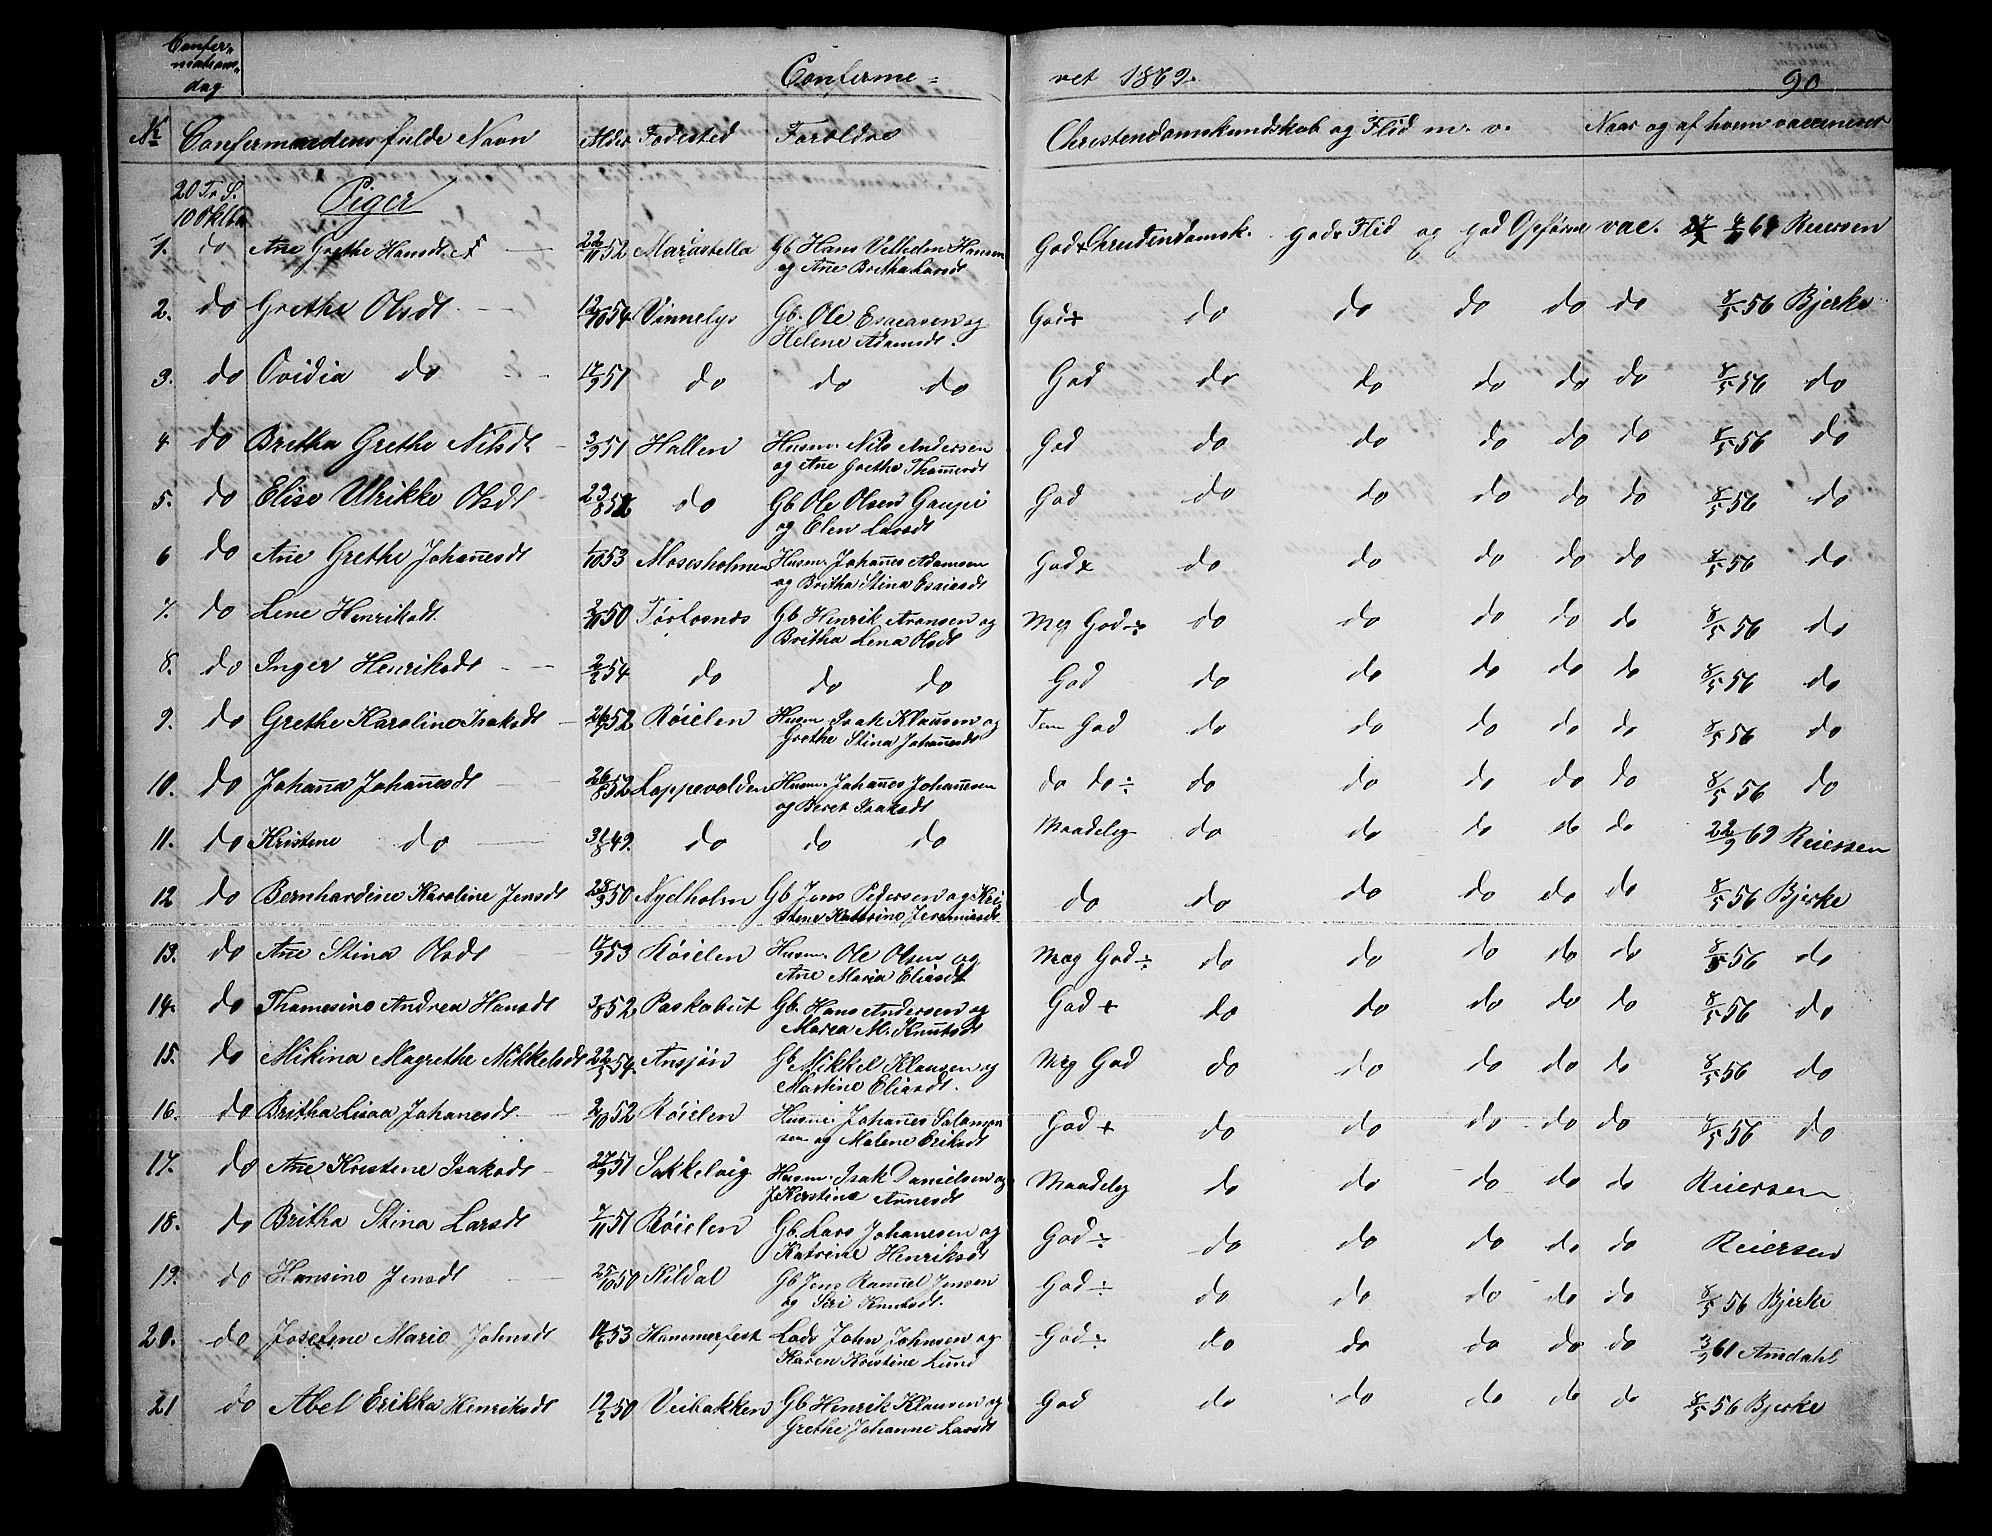 Confer-
mations-
dag
Conferme-
vet 1869.
90
No Confermandens fulde Navn Alder Fødested Forældre Christendomskundskab og Flid m. v. Naar og af hvem vaccineret
20 Tr. S.
10 Oktbr Piger
1. do Ane Grethe Hansdt. 22/11 52 Marastella Gb Hans Velhelm Hansen God Christendomsk. god Flid og god Opførse vac. 69 Reiersen
og Ane Britha Larsdt
2. do Grethe Olsdt 12/10 54 Vinnelys Gb. Ole Esaiasen og God+ do do do do do 8/5 56 Bjerke
Helene Adamsdt.
3. do Ovidia do 17/9 51 do do do God do do do do do 8/5 56 do
4 do Britha Grethe Nilsdt 3/9 51 Hallen Husm. Nils Andersen God do do do do do 8/5 56 do
og Ane Grethe Thomesdt
5. do Elise Ulrikke Olsdt 23/8 52 do Gb Ole Olsen Gaupi God do do do do do 8/5 56 do
og Elen Larsdt
6 do Ane Grethe Johanesdt 1/10 53 Mosesholmen Husm. Johanes Adamsen God+ do do do do do 8/5 56 do
og Britha Stina Essiasdt
7. do Lene Henriksdt. 50 Tørfosnes Gb Henrik Aronsen og Meg God÷ do do do do do 8/5 56 do
Britha Lena Olsdt
8. do Inger Henriksdt 54 do do do God do do do do do 8/5 56 do
9. do Grethe Karoline Isaksdt 52 Røielen Husm. Isak Klausen og Tem God do do do do do 8/5 56 do
Grethe Stina Johanesdt
10. do Johana Johanesdt 26/8 52 Loppevolden Husm. Johanes Johanesen do do÷ do do do do do 8/5 56 do
og Beret Isaksdt
11. do Kristene do 31/8 49. do do do Maadelig do do do do do 22/9 69 Reiersen
12 do Bernhardine Karoline Jensdt 28/9 50 Nyelholm Gb Jens Pedersen og Kri- do do do do do do 8/5 56 Bjerke
stene Katrine Jeremiasdt
13. do Ane Stina Olsdt 17/9 53 Røielen Husm. Ole Olsen og Meg God÷ do do do do do 8/5 56 do
Ane Maria Eliasdt
14. do Thomesine Andrea Hansdt 3/8 52 Paskabut Gb. Hans Andersen og God + do do do do do 8/5 56 do
Marea M. Knutsdt
15. do Mikina Magrethe Mikkelsdt 22/5 54. Ansjøn Gb Mikkel Klausen og Meg God do do do do do 8/5 56 do
Martine Eliasdt.
16. do Britha Lisaa Johanesdt 2/10 52 Røielen Husm. Johanes Salamon- God + do do do do do 8/5 56 do
sen og Malene Eriksdt
17. do Ane Kristene Isaksdt 27/9 51 Sakkelvig Husm. Isak Danielsen og Maadelig do do do do do Reiersen
Kerstine Arnesdt
18. do Britha Stina Larsdt 7/11 51 Røielen Gb. Lars Johanesen og God ÷ do do do do do Reiersen
Katrine Henriksdt
19. do Hansine Jensdt 25/10 50 Kildal Gb Jens Ramel Jensen God ÷ do do do do do 8/5 56 Bjerke
og Siri Knutsdt.
20. do Josefene Marie Johnsdt 53 Hammerfest Lods John Johnsen og God÷ do do do do do 3/9 61 Amdahl
Karen Kristine Lund
21 do Abel Erikka Henriksdt 50 Veibakken Gb Henrik Klausen og God do do do do do 8/5 56 Bjerke
Grethe Johanne Larsdt